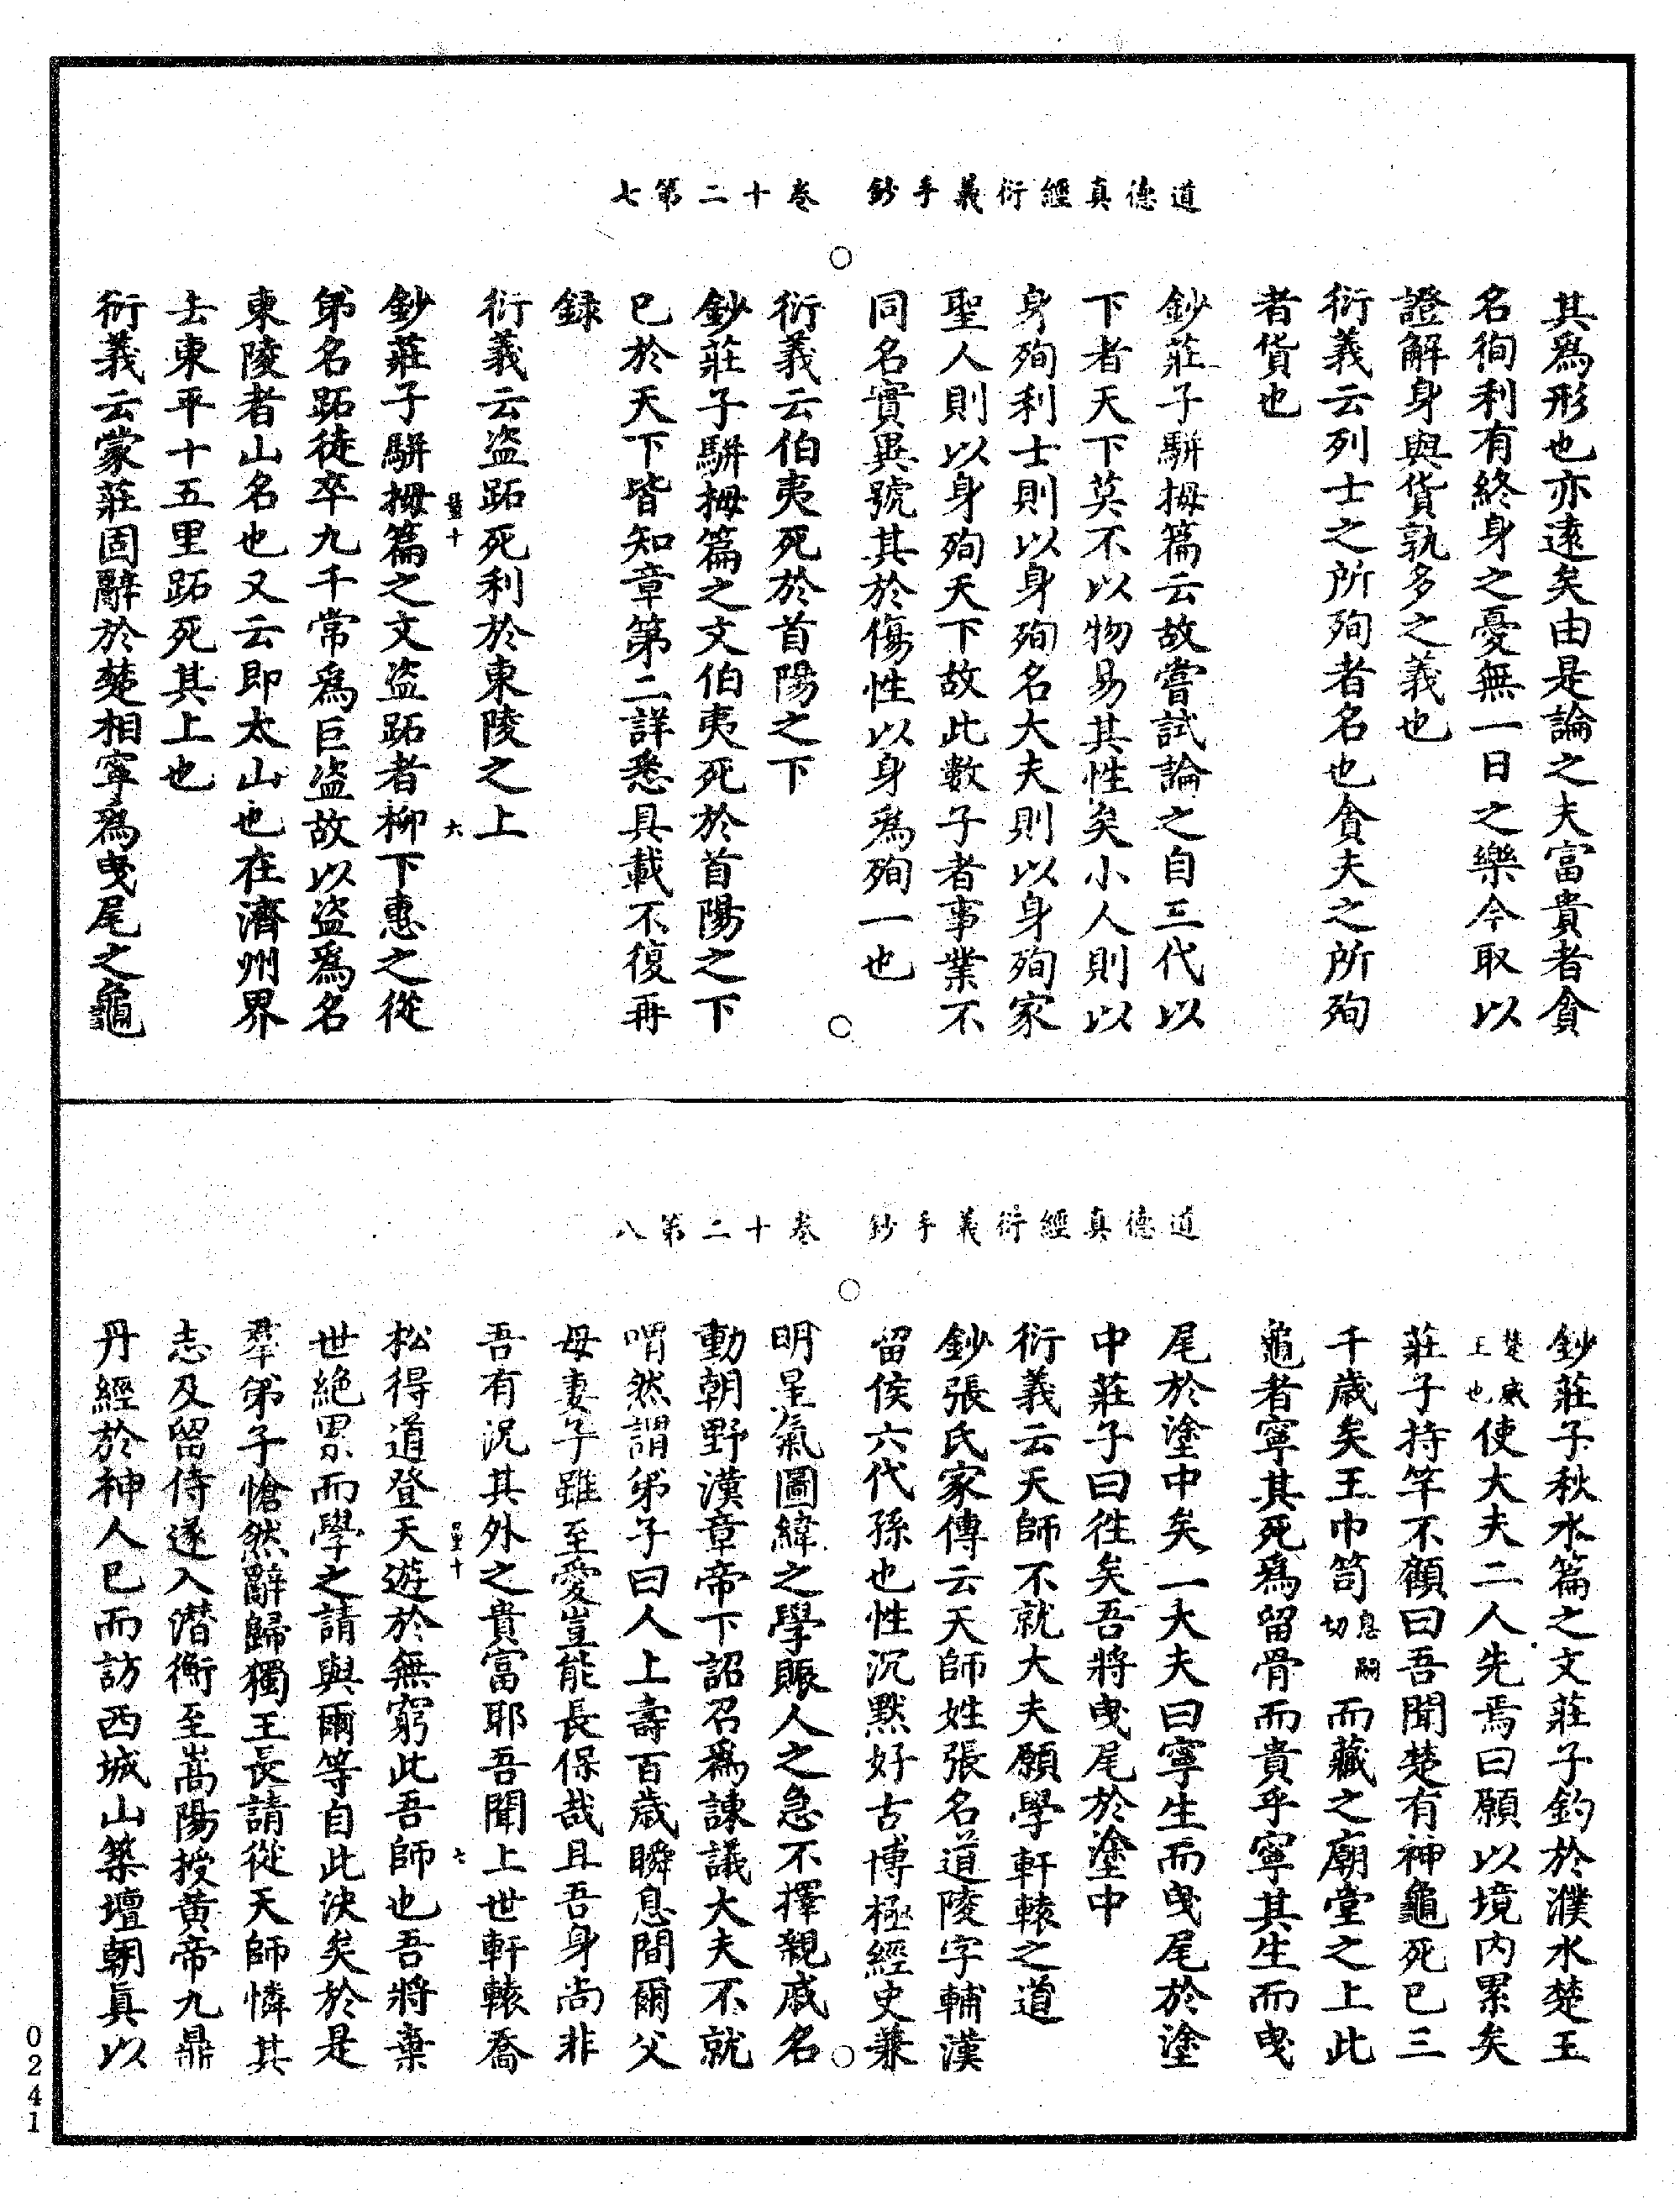 道德真經衍義手鈔　卷十二第七
其爲形也亦遠矣由是論之夫富貴者貪
名徇利有終身之憂無一日之樂今取以
證解身與貨孰多之義也
衍義云列士之所殉者名也貪夫之所殉
者貨也
鈔莊子駢拇篇云故嘗試論之自三代以
下者天下莫不以物易其性矣小人則以
身殉利士則以身殉名大夫則以身殉家
聖人則以身殉天下故此數子者事業不
同名實異號其於傷性以身爲殉一也
衍義云伯夷死於首陽之下
鈔莊子駢拇篇之文伯夷死於首陽之下
已於天下皆知章第二詳悉具載不復再
録
衍義云盜跖死利於東陵之上
六
鈔莊子駢拇篇之文盜跖者柳下惠之從
弟名跖徒卒九千常爲巨盜故以盜爲名
東陵者山名也又云即太山也在濟州界
去東平十五里跖死其上也
衍義云蒙莊固辭於楚相寧爲曳尾之龜
道德真經衍義手鈔　卷十二第八
鈔莊子秋水篇之文莊子釣於濮水楚王
楚威王也使大夫二人先焉曰願以境内累矣
莊子持竿不顧曰吾聞楚有神龜死已三
千歲矣王巾笥息嗣切而藏之廟堂之上此
龜者寧其死爲留骨而貴乎寧其生而曳
尾於塗中矣一大夫曰寧生而曳尾於塗
中莊子曰徃矣吾將曳尾於塗中
衍義云天師不就大夫願學軒轅之道
鈔張氏家傳云天師姓張名道陵字輔漢
留侯六代孫也性沉默好古博極經史兼
明星氣圖緯之學賑人之急不擇親戚名
動朝野漢章帝下詔召爲諫議大夫不就
喟然謂弟子曰人上壽百歲瞬息間爾父
母妻子雖至愛豈能長保哉且吾身尚非
吾有況其外之貴富耶吾聞上世軒轅喬
七
松得道登天遊於無窮此吾師也吾將棄
世絕累而學之請與爾等自此決矣於是
羣弟子愴然辭歸獨王長請從天師憐其
志及留侍遂入潛衡至嵩陽授黃帝九鼎
丹經於神人已而訪西城山築壇朝眞以
0241